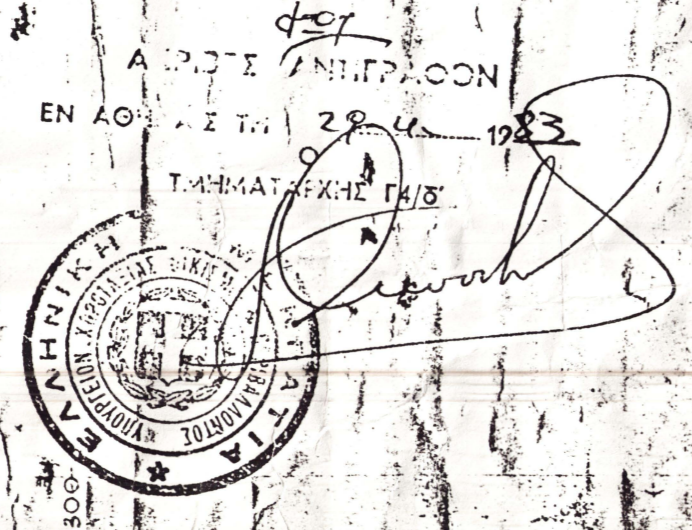 ΑΚΡΙΒΕΣ ΑΝΤΙΓΡΑΦΟΝ
ΕΝ ΑΘΗΝΑΙΣ ΤΗ 29 4 1983
Ο
ΤΜΗΜΑΤΑΡΧΗΣ Γ4/δ'
ΕΛΛΗΝΙΚΗ ΔΗΜΟΚΡΑΤΙΑ
ΥΠΟΥΡΓΕΙΟΝ ΧΩΡΟΤΑΞΙΑΣ ΟΙΚΙΣΜΟΥ ΠΕΡΙΒΑΛΛΟΝΤΟΣ
300